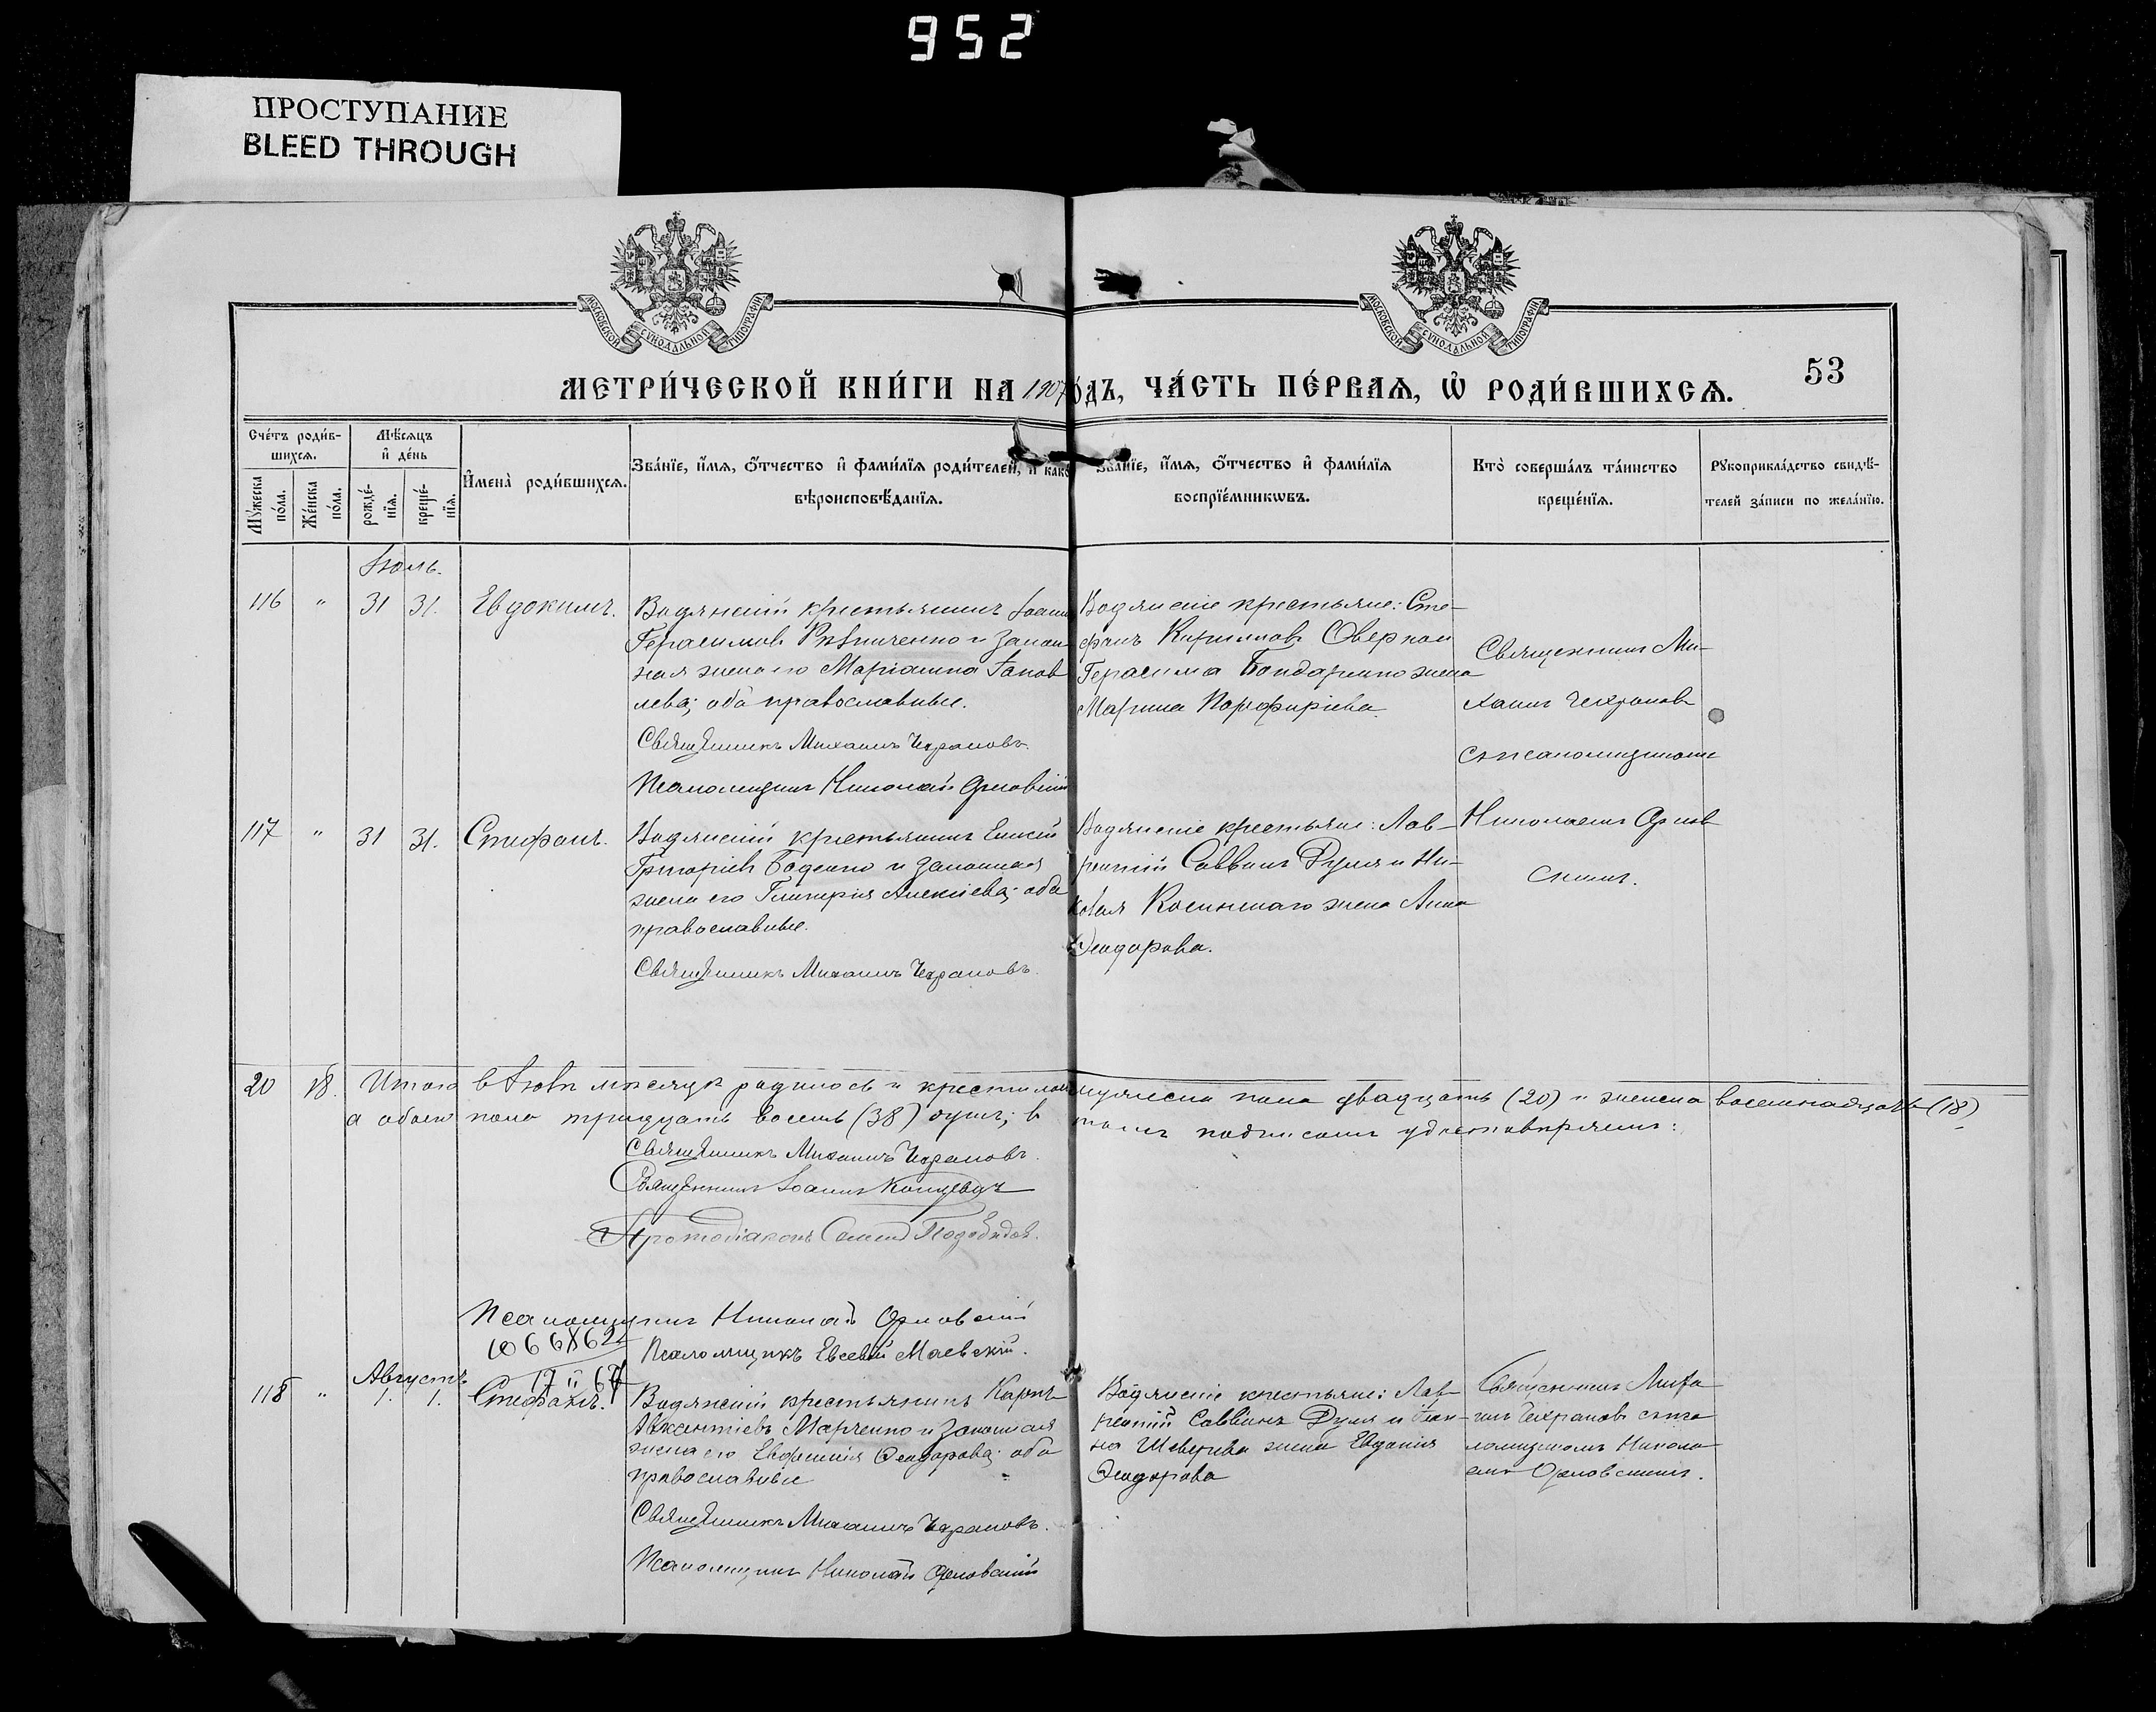 952
ПРОСТУПАНИЕ
BLEED THROUGH
МОСКОВСКОЙ СѴНОДАЛЬНОЙ ТИПОГРАФІИ
МОСКОВСКОЙ СѴНОДАЛЬНОЙ ТИПОГРАФІИ
МЕТРИ́ЧЕСКОЙ КНИ́ГИ НА 1907 ГО́ДЪ, ЧА́СТЬ ПЕ́РВАѦ, Ѡ҆ РОДИ́ВШИХСѦ.
53
Сче́тъ роди́в-
шихсѧ.
Мѣ́сѧцъ
и҆ де́нь
Мꙋ́жеска по́ла.
Же́нска по́ла.
рожде́-
нїѧ.
креще́-
нїѧ.
И҆мена̀ роди́вшихсѧ.
Зва́нїе, и҆́мѧ, ѻ҆́тчество и҆ фами́лїѧ роди́телей, и҆ како́
вѣроисповѣ́данїѧ.
Зва́нїе, и҆́мѧ, ѻ҆́тчество и҆ фами́лїѧ
воспрїе́мникѡвъ.
Кто̀ соверша́лъ та́инство
креще́нїѧ.
Рꙋкоприкла́дство свидѣ́-
телей за́писи по жела́нїю.
Іюль.
116 " 31 31. Евдокимъ.
Водянскій крестьянинъ Іоаннъ
Герасимовъ Рѣзниченко и закон
ная жена его Маріанна Іаков
лева; оба православные.
Священникъ Михаилъ Чехрановъ.
Псаломщикъ Николай Орловскій
Водянскіе крестьяне: Сте-
фанъ Кирилловъ Оверко и
Герасима Бондаренко жена
Марина Порфиріева.
Священникъ Ми-
хаилъ Чехрановъ
съ псаломщикомъ
Николаемъ Орлов
скимъ.
117 " 31 31. Стефанъ.
Водянскій крестьянинъ Елисей
Григоріевъ Боденко и законная
жена его Гликерія Алексіева; оба
православные.
Священникъ Михаилъ Чехрановъ.
Водянскіе крестьяне: Лав-
рентій Саввинъ Дуля и
жена Анна
Ѳеодорова.
20 18. Итого въ Іюлѣ мѣсяцѣ родилось и крестилось мужеска пола двадцать (20) и женска восемнадцать (18)
а обоего пола тридцать восемь (38) душъ; въ томъ подписомъ удостовѣряемъ:
Священникъ Михаилъ Чехрановъ.
Священникъ Іоаннъ
Протодіаконъ
Псаломщикъ Николай Орловскій
Псаломщикъ Евсевій Маевскій.
17 II 67
Августъ
118 " 1. 1. Стефанъ.
Водянскій крестьянинъ Карпъ
Авксентіевъ Марченко и законная
жена его Евфросинія Ѳеодорова; оба
православные
Священникъ Михаилъ Чехрановъ.
Псаломщикъ Николай Орловскій
Водянскіе крестьяне: Лав-
рентій Саввинъ Дуля и
жена Евдокія
Ѳеодорова
Священникъ Миха
илъ Чехрановъ съ пса
ломщикомъ Никола
емъ Орловскимъ.